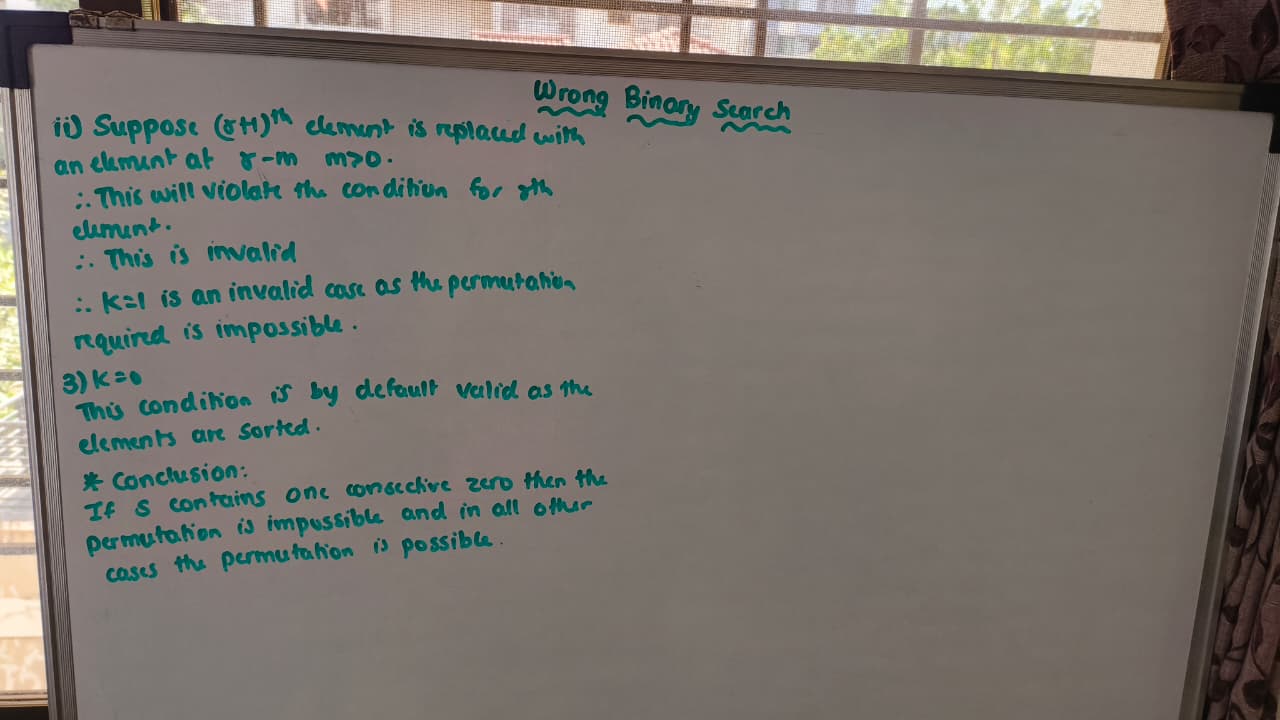 Wrong Binary Search
ii) Suppose (r+1)th element is replaced with
an element at r-m m>0.
∴ This will violate the condition for rth
element.
∴ This is invalid
∴ K=1 is an invalid case as the permutation
required is impossible.
3) K=0
This condition is by default valid as the
elements are sorted.
* Conclusion:
If S contains one consective zero then the
permutation is impossible and in all other
cases the permutation is possible.